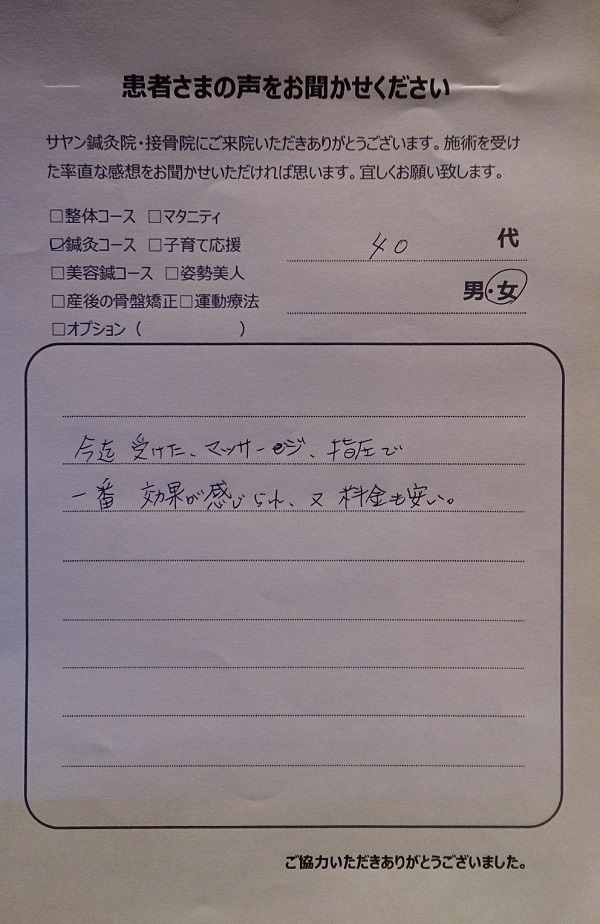 患者さまの声をお聞かせください
サヤン鍼灸院・接骨院にご来院いただきありがとうございます。施術を受け
た率直な感想をお聞かせいただければ思います。宜しくお願い致します。
□整体コース □マタニティ
☑鍼灸コース □子育て応援
40 代
□美容鍼コース □姿勢美人
男・女
□産後の骨盤矯正□運動療法
□オプション（ ）
今迄 受けた、マッサージ、指圧で
一番 効果が感じられ、又 料金も安い。
ご協力いただきありがとうございました。